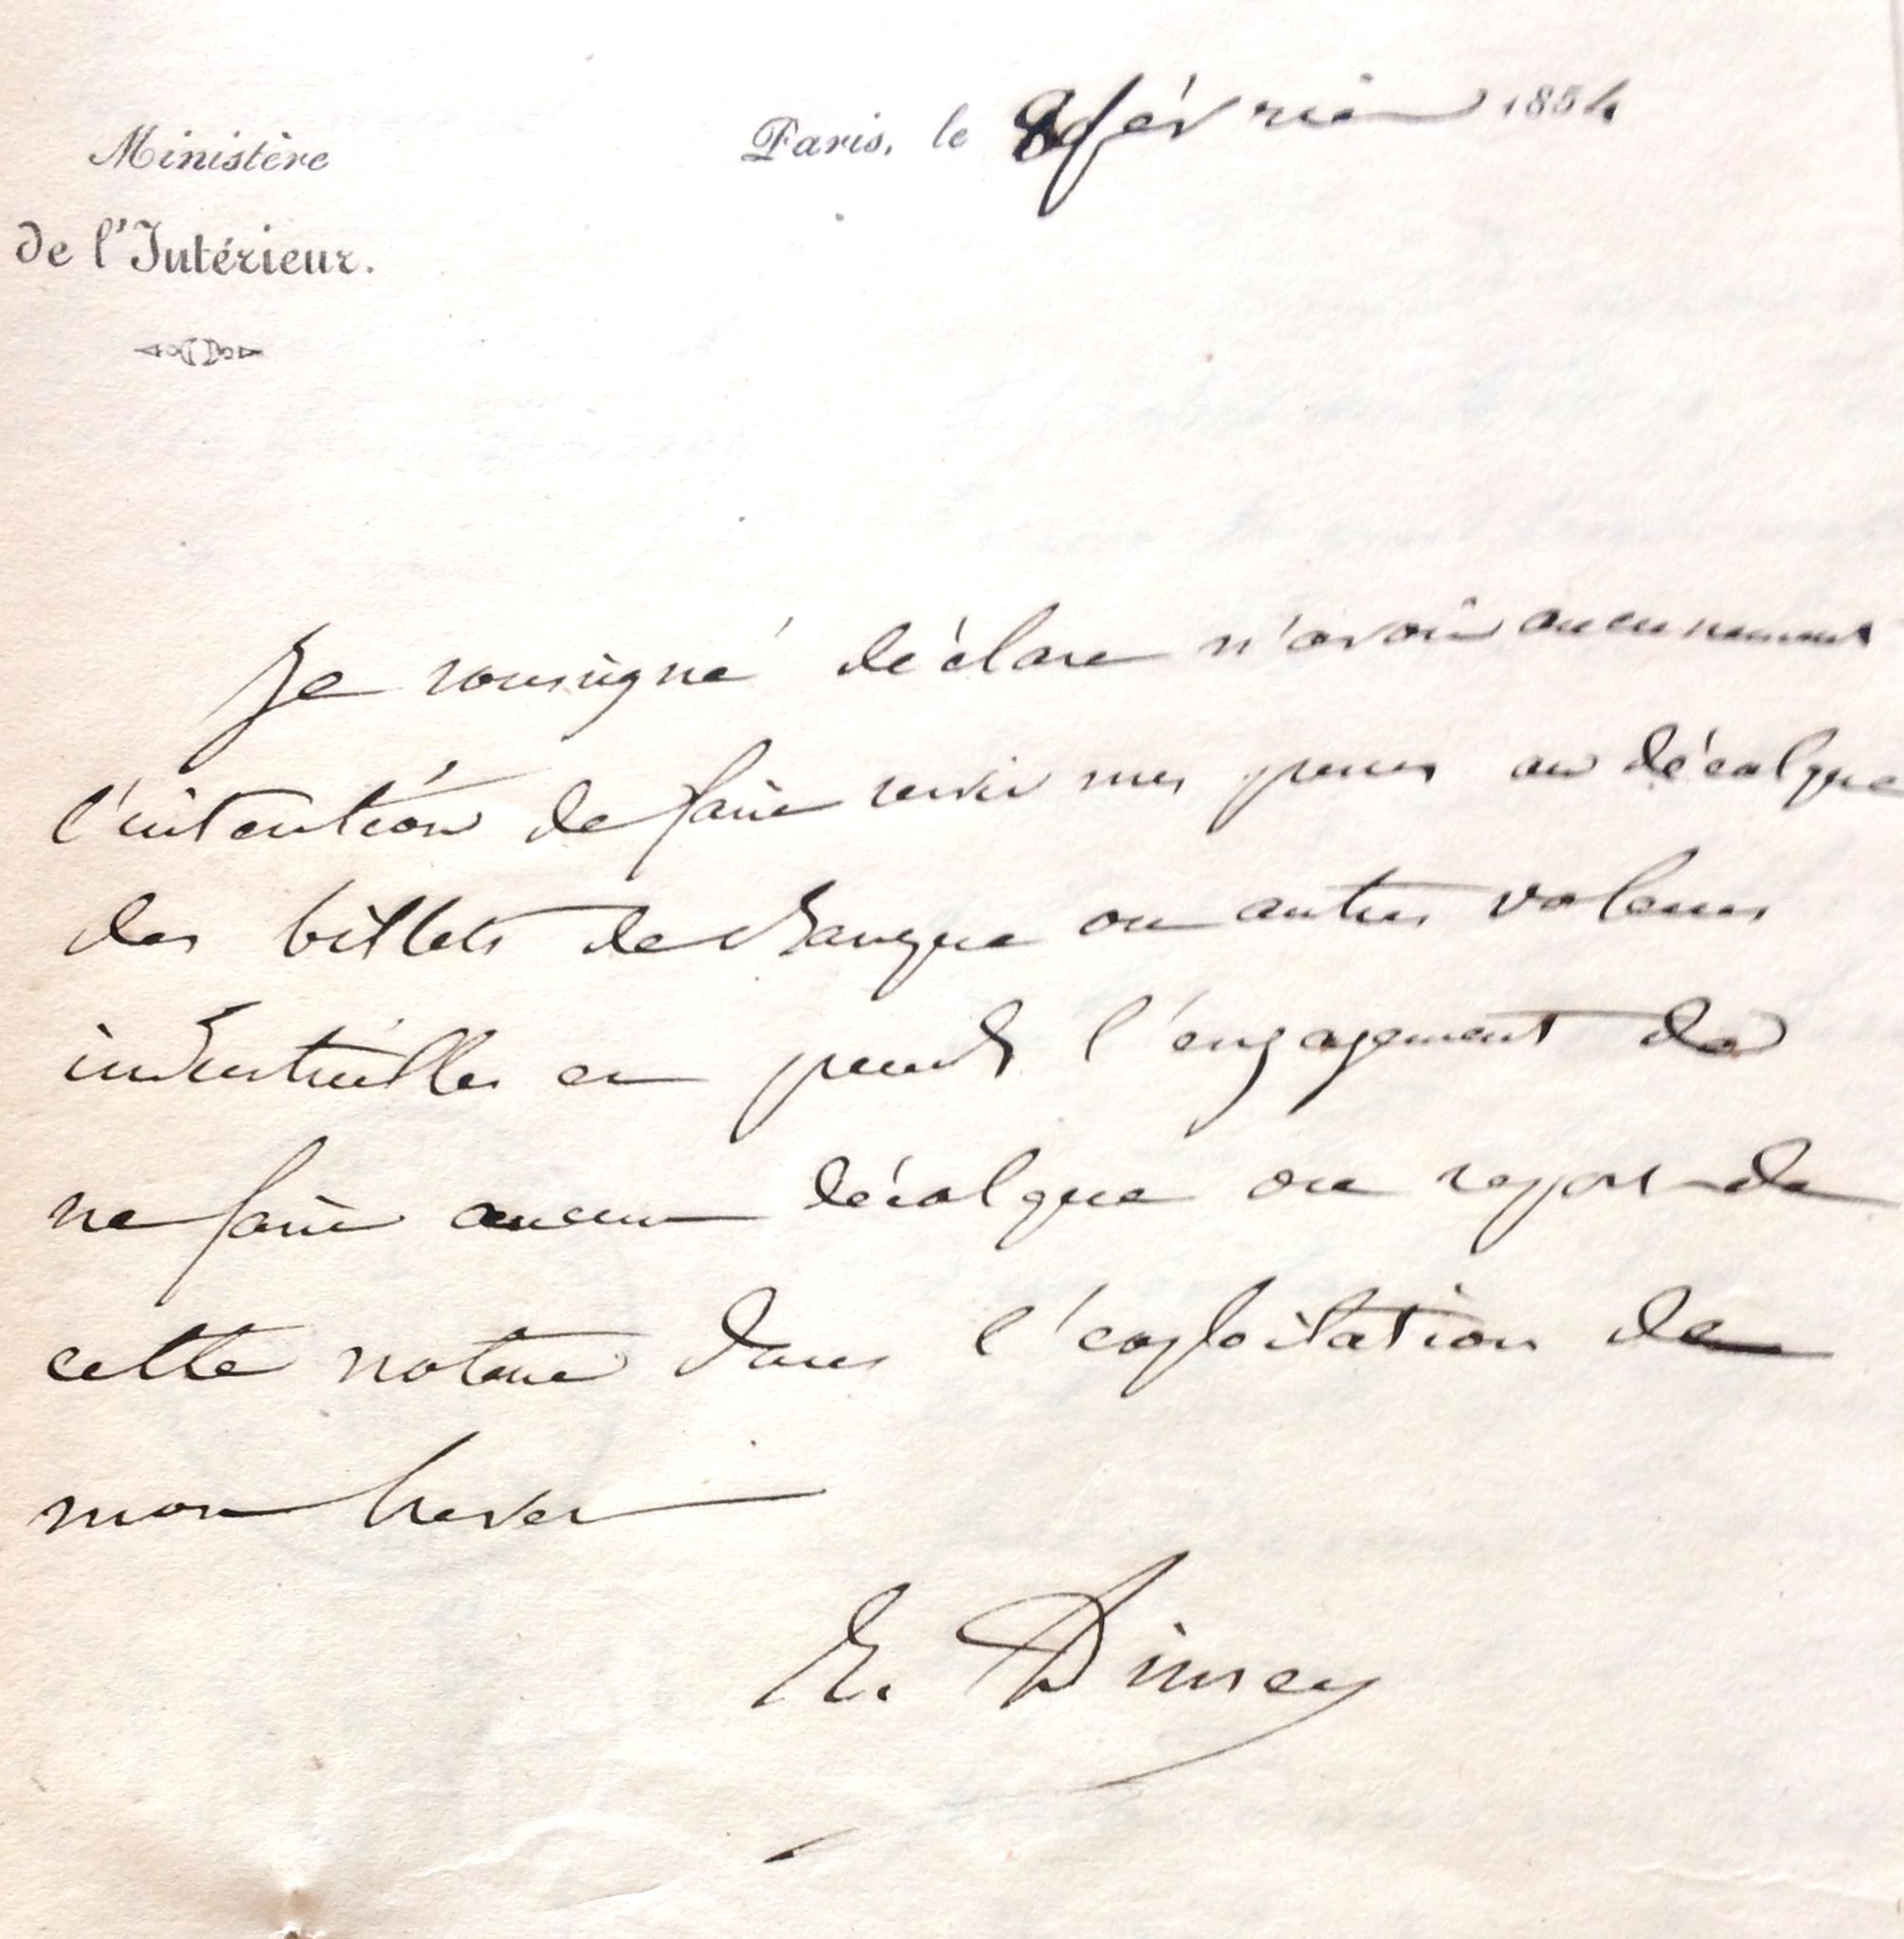 Ministère
de l'Intérieur.
Paris, le 8 février 1854
Je soussigné déclare n'avoir aucunement
l'intention de faire servir mes presses au décalque
des billets de Banque ou autres valeurs
industrielles et prends l'engagement de
ne faire aucun décalque ou report de
cette nature dans l'exploitation de
mon brevet
E.